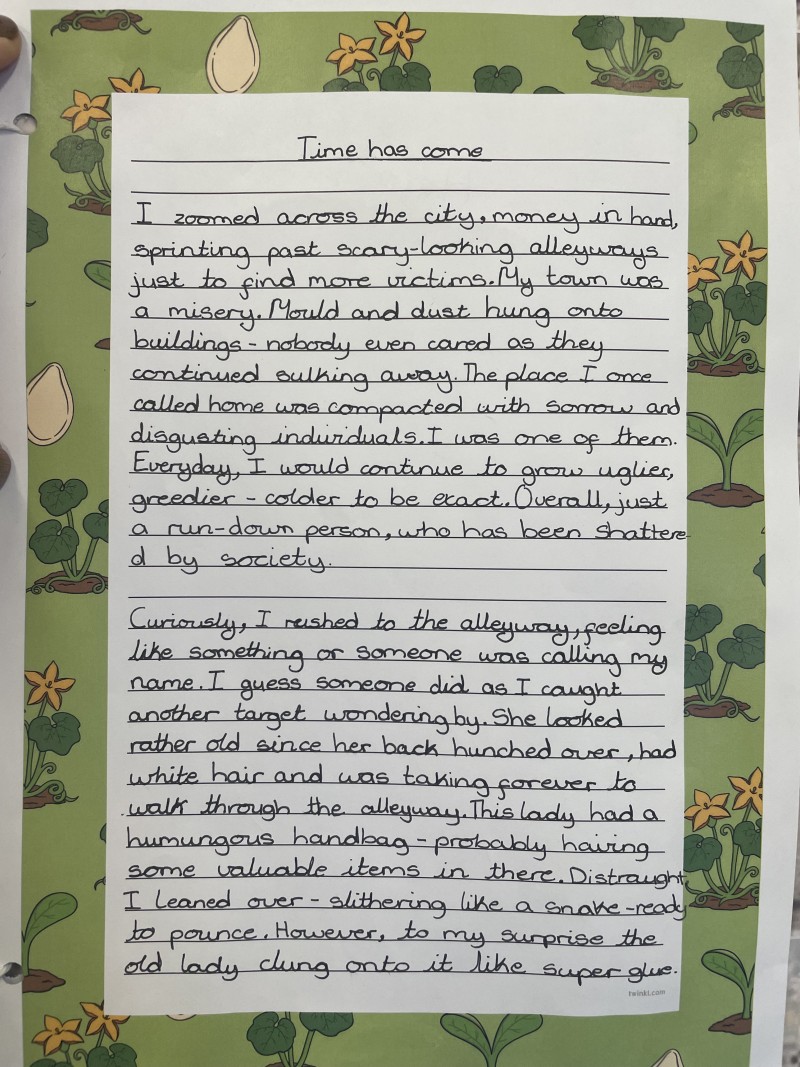 Time has come
I zoomed across the city, money in hand,
sprinting past scary-looking alleyways
just to find more victims. My town was
a misery. Mould and dust hung onto
buildings - nobody even cared as they
continued sulking away. The place I once
called home was compacted with sorrow and
disgusting individuals. I was one of them.
Everyday, I would continue to grow uglier,
greedier - colder to be exact. Overall, just
a run-down person, who has been shattere
d by society.
Curiously, I rushed to the alleyway, feeling
like something or someone was calling my
name. I guess someone did as I caught
another target wondering by. She looked
rather old since her back hunched over, had
white hair and was taking forever to
walk through the alleyway. This lady had a
humungous handbag - probably having
some valuable items in there. Distraught,
I leaned over - slithering like a snake - ready
to pounce. However, to my surprise the
old lady clung onto it like super glue.
twinkl.com